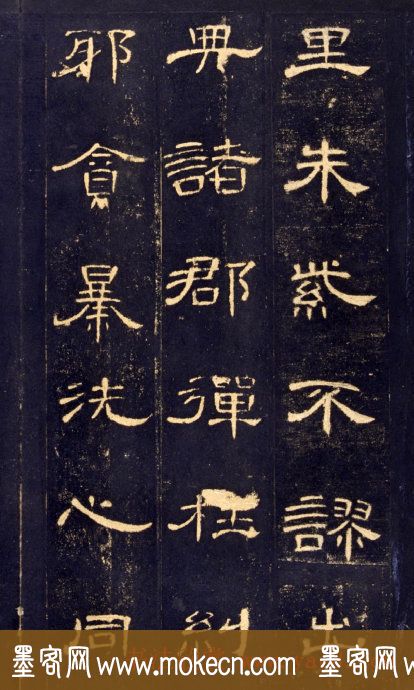 里朱紫不謬出
典諸郡彈枉糾
邪貪暴洗心同
墨客网 www.mokecn.com 墨客网